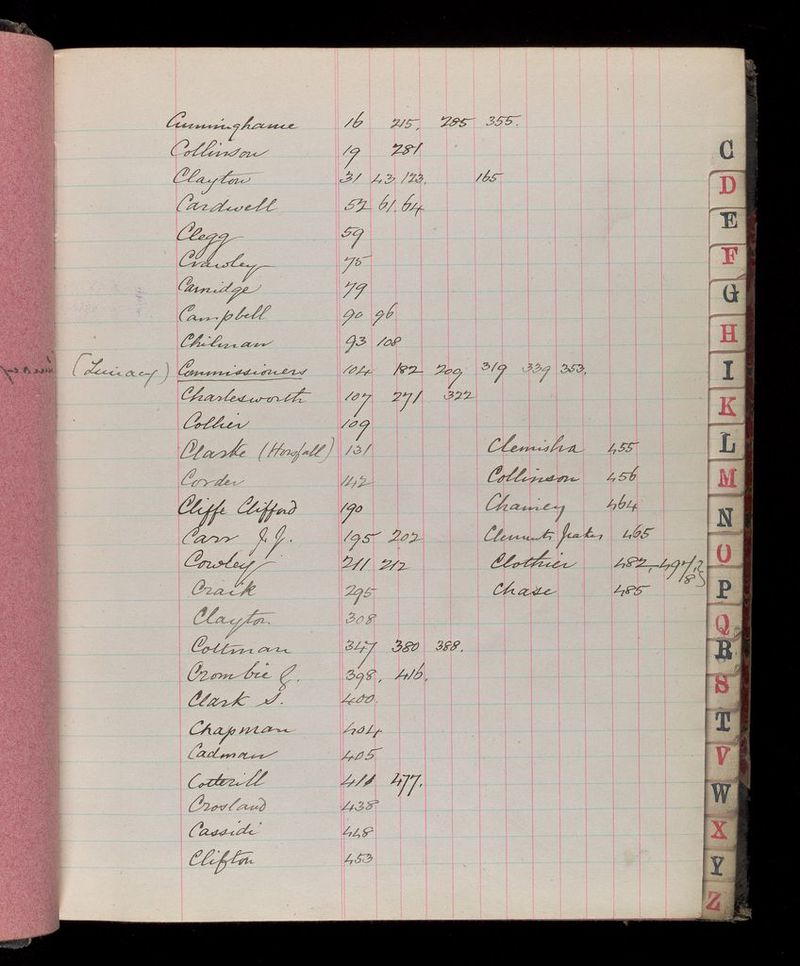 Cunninghame 16 215, 285 355.
Collinson 19 281
Clayton 31 43 123. 165
Cardwell 52 61. 64
Clegg 59
Crawley 75
Camidge 79
Campbell 90 96
Chilman 93 108
(Lunacy) Commissioners 104 182 209 319 339 353.
Charlesworth 107 271 322
Collier 109
Clarke (Horsfall) 131
Clemisha 455
Corder 142
Collinson 456
Cliffe Clifford 190
Chamney 464
Carr J. J. 195 202
Clements 465
Cowley 211 212
Clothier 482,
Craik 295
Chase 485
Clayton 308
Coltman 347 380 388.
Crombie J. 398, 416.
Clark S. 400.
Chapman 404
Cadman 405
Cotterill 411 477.
Crosland 438
Cassidi 448
Clifton 453
C
D
E
F
G
H
I
K
L
M
N
O
P
Q
R
S
T
V
W
X
Y
Z